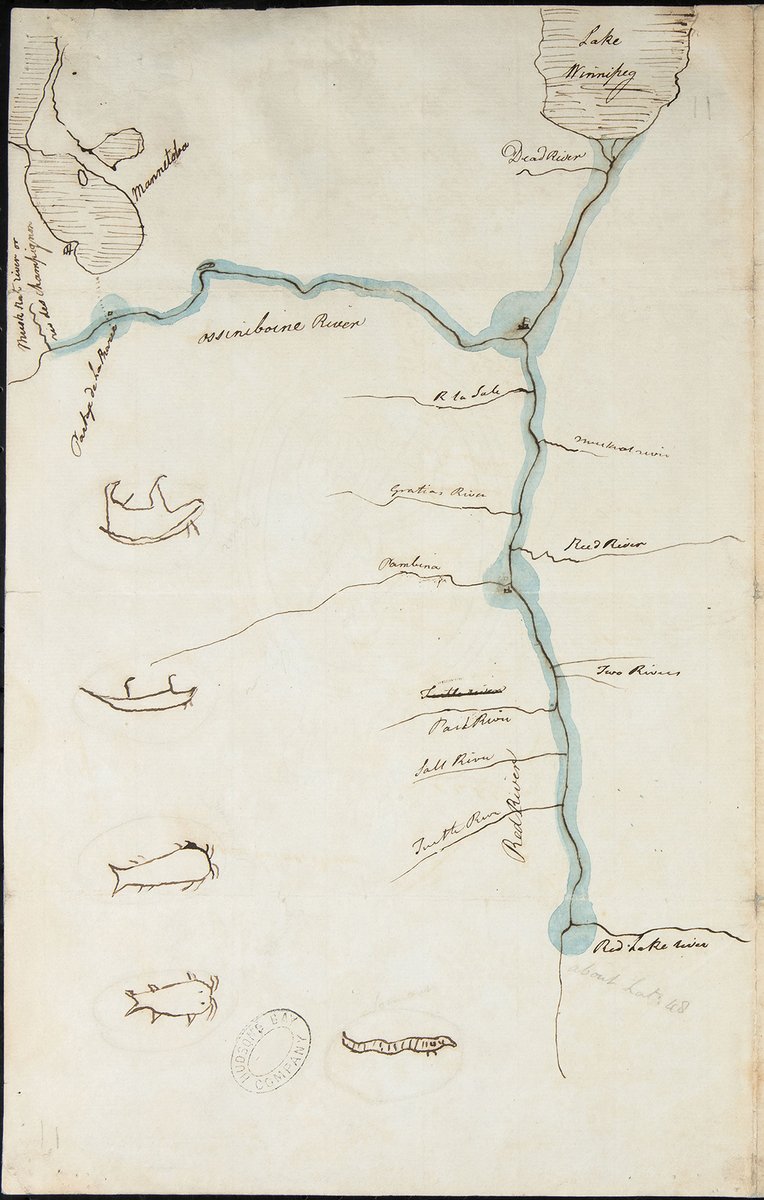 Lake
Winnipeg
Dead River
Mannetoba
Musk Rat river or
riv des Champignon
Ossiniboine River
Portage de la Prairie
R la Sale
Muskrat river
Gratias River
Reed River
Pambina
Two Rivers
Turtle River
Park River
Salt River
Red River
Turtle River
Red Lake river
about Latde 48
HUDSON'S BAY
COMPANY